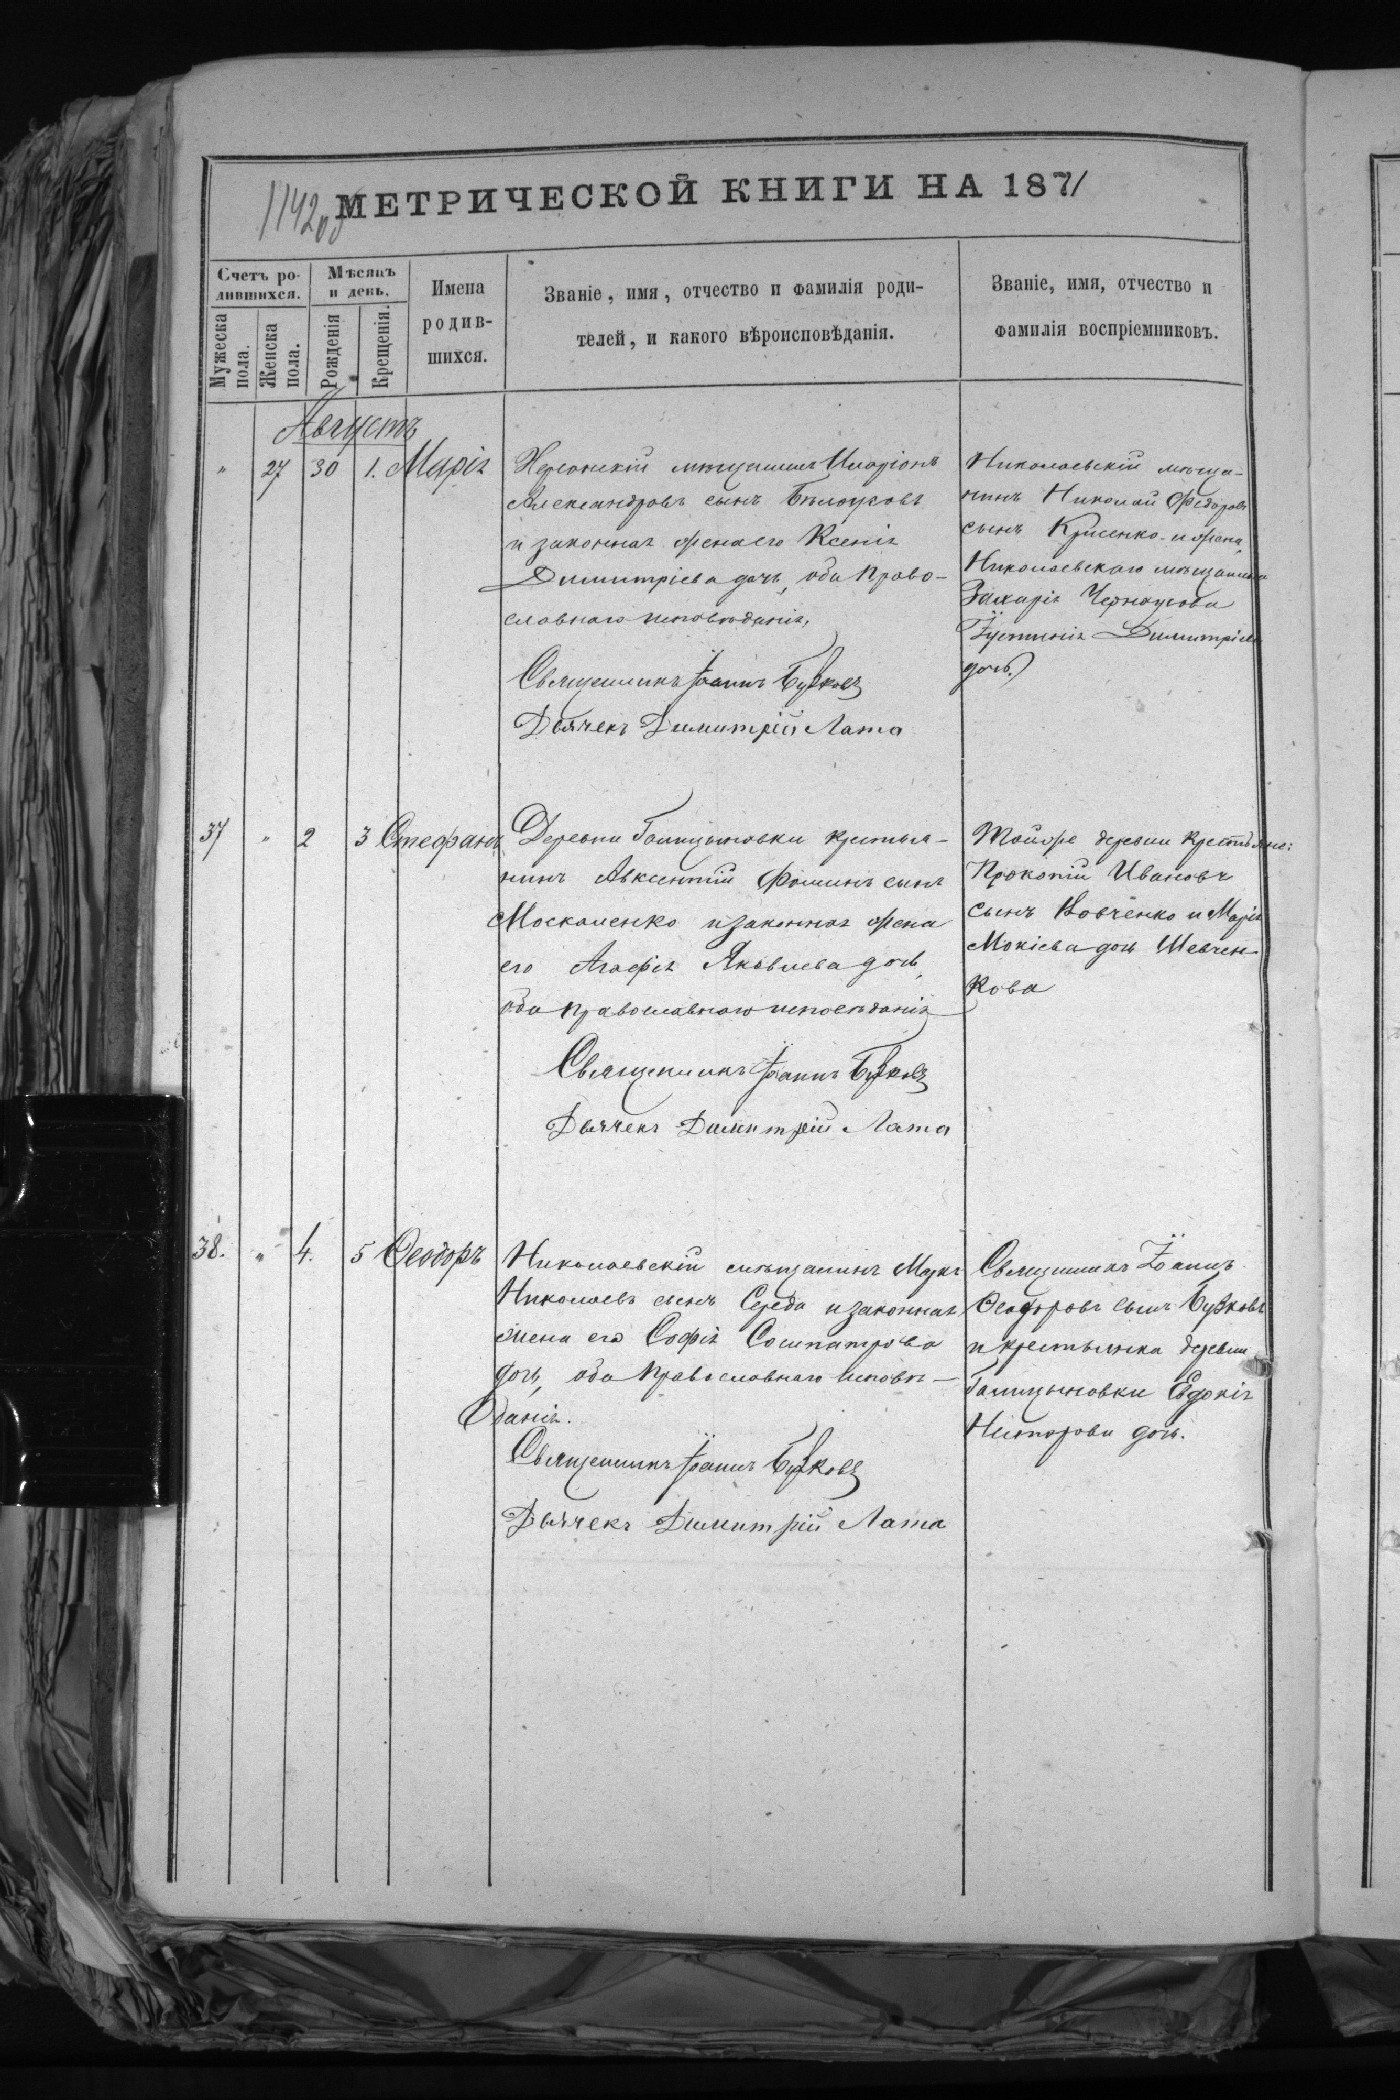 1142 об
МЕТРИЧЕСКОЙ КНИГИ НА 1871
Счетъ ро-
дившихся.
Мѣсяцъ
и день.
Имена
родив-
шихся.
Званіе, имя, отчество и фамилія роди-
телей, и какого вѣроисповѣданія.
Званіе, имя, отчество и
фамилія воспріемниковъ.
Мужеска
пола.
Женска
пола.
Рожденія
Крещенія.
Августъ
" 27 30 1. Марія
Херсонскій мѣщанинъ Иларіонъ
Александровъ сынъ Бѣлоусовъ
и законная жена его Ксенія
Димитріева дочь, оба Право-
славнаго исповѣданія,
Священникъ Іоаннъ
Дьячекъ Димитрій Лата
Николаевскій мѣща-
нинъ Николай Федоровъ
сынъ Крисенко и жена
Николаевскаго мѣщанина
Захарія Черноусова
Іустинія Димитріева
дочь.
37 " 2 3 Стефанъ
Деревни Голицыновки крестья-
нинъ Авксентій Фоминъ сынъ
Москаленко и законная жена
его Агафія Яковлева дочь,
оба православнаго исповѣданія
Священникъ Іоаннъ
Дьячекъ Димитрій Лата
Тойже деревни крестьяне:
Прокопій Ивановъ
сынъ Вовченко и Марія
Мокіева дочь Шевчен-
кова
38. " 4. 5 Феодоръ
Николаевскій мѣщанинъ Маркъ
Николаевъ сынъ Середа и законная
жена его Софія Сосипатрова
дочь, оба Православнаго исповѣ-
данія.
Священникъ Іоаннъ
Дьячекъ Димитрій Лата
Священникъ Іоаннъ
Феодоровъ сынъ
и крестьянка деревни
Голицыновки Евдокія
Несторова дочь.